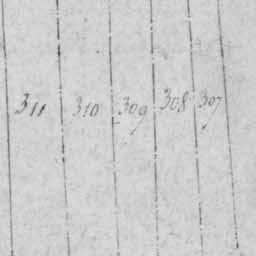 311 310 309 308 307